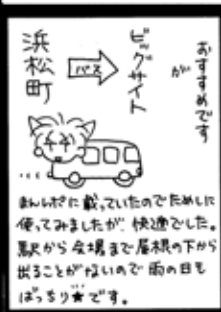 浜松町
バス
ビッグサイト
が
おすすめです
まんレポに載っていたのでためしに
使ってみましたが、快適でした。
駅から会場まで屋根の下から
出ることがないので雨の日も
ばっちり★です。